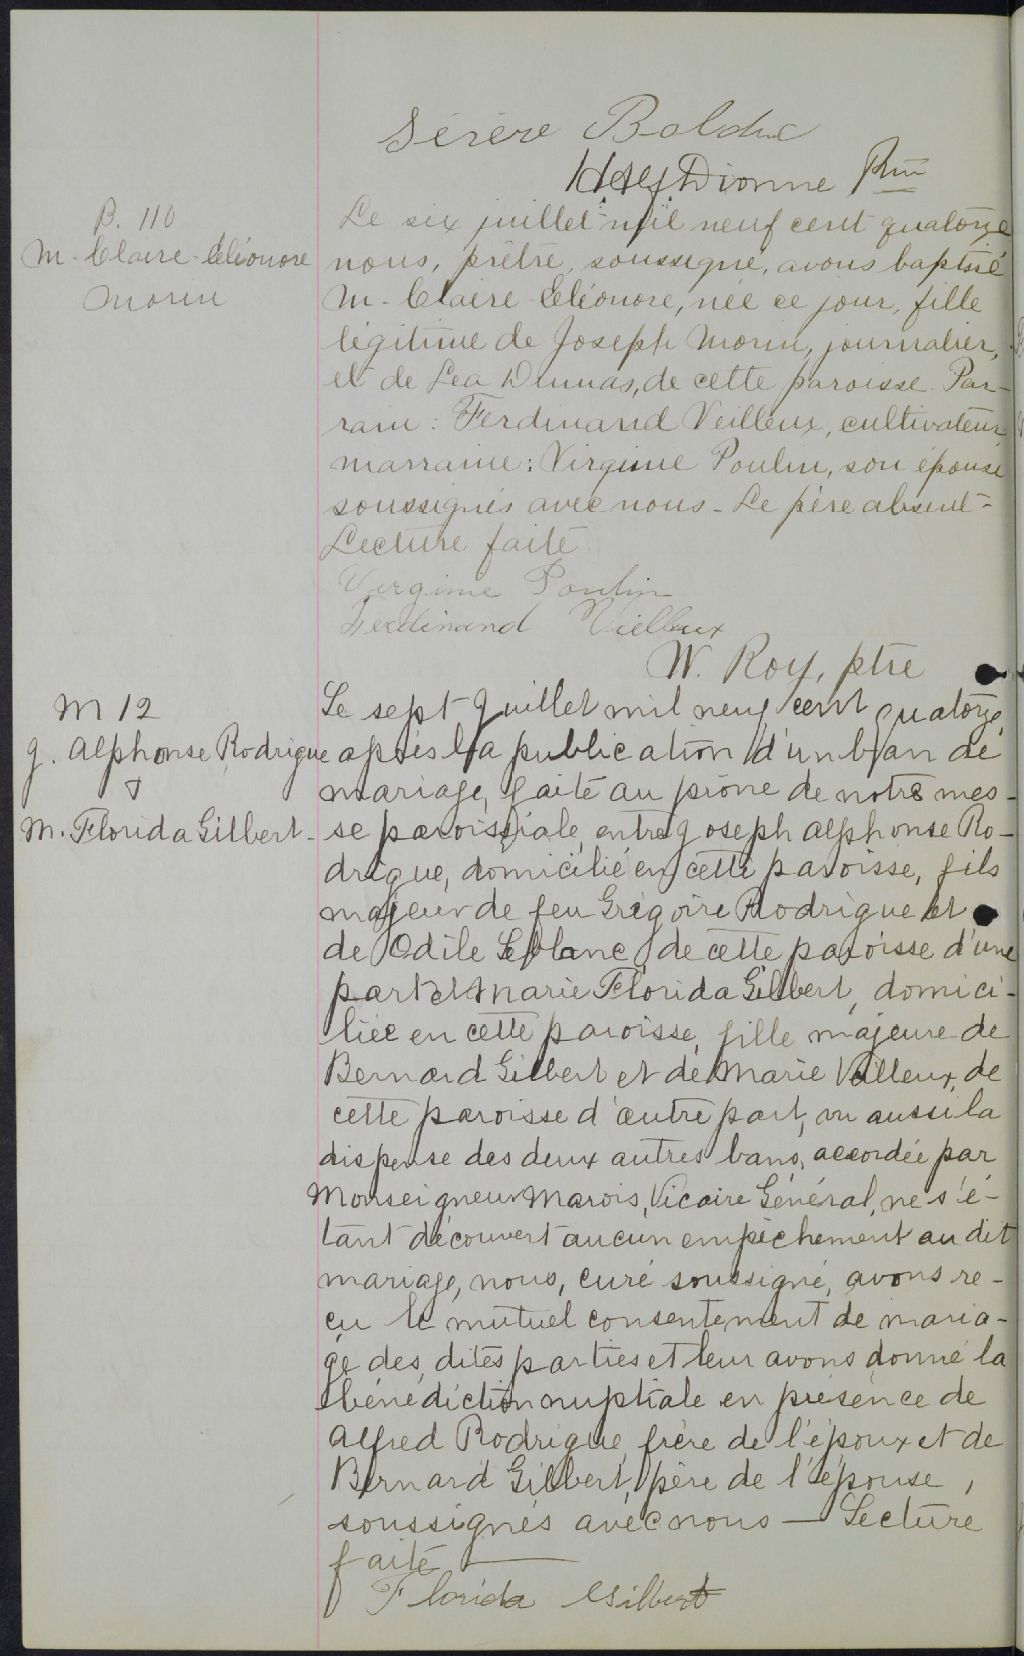 Sérère Bolduc
H. Alf. Dionne Ptre
B. 110
M. Claire-Eléonore
Morin
Le six juillet mil neuf cent quatorze
nous, prêtre, soussigné, avons baptisé
M. Claire-Eléonore, née ce jour, fille
légitime de Joseph Morin, journalier,
et de Léa Dumas, de cette paroisse. Par-
rain: Ferdinand Veilleux, cultivateur
marraine: Virginie Poulin, son épouse
soussignés avec nous - Le père absent -
Lecture faite
Virginie Poulin
Ferdinand Vielleux
W. Roy, ptre
M 12
J. Alphonse Rodrigue
&
M. Florida Gilbert
Le sept Juillet mil neuf cent quatorze,
après la publication d'un ban de
mariage, faite au prône de notre mes-
se paroissiale, entre Joseph Alphonse Ro-
drigue, domicilié en cette paroisse, fils
majeur de feu Grégoire Rodrigue et
de Odile Leblanc, de cette paroisse d'une
part et Marie Florida Gilbert, domici-
liée en cette paroisse, fille majeure de
Bernard Gilbert et de Marie Veilleux, de
cette paroisse d'autre part, vu aussi la
dispense des deux autres bans, accordée par
Monseigneur Marois, Vicaire Général, ne s'é-
tant découvert aucun empêchement au dit
mariage, nous, curé soussigné, avons re-
çu le mutuel consentement de maria-
ge des dites parties et leur avons donné la
bénédiction nuptiale en présence de
Alfred Rodrigue, frère de l'époux et de
Bernard Gilbert, père de l'épouse,
soussignés avec nous — Lecture
faite —
Florida Gilbert